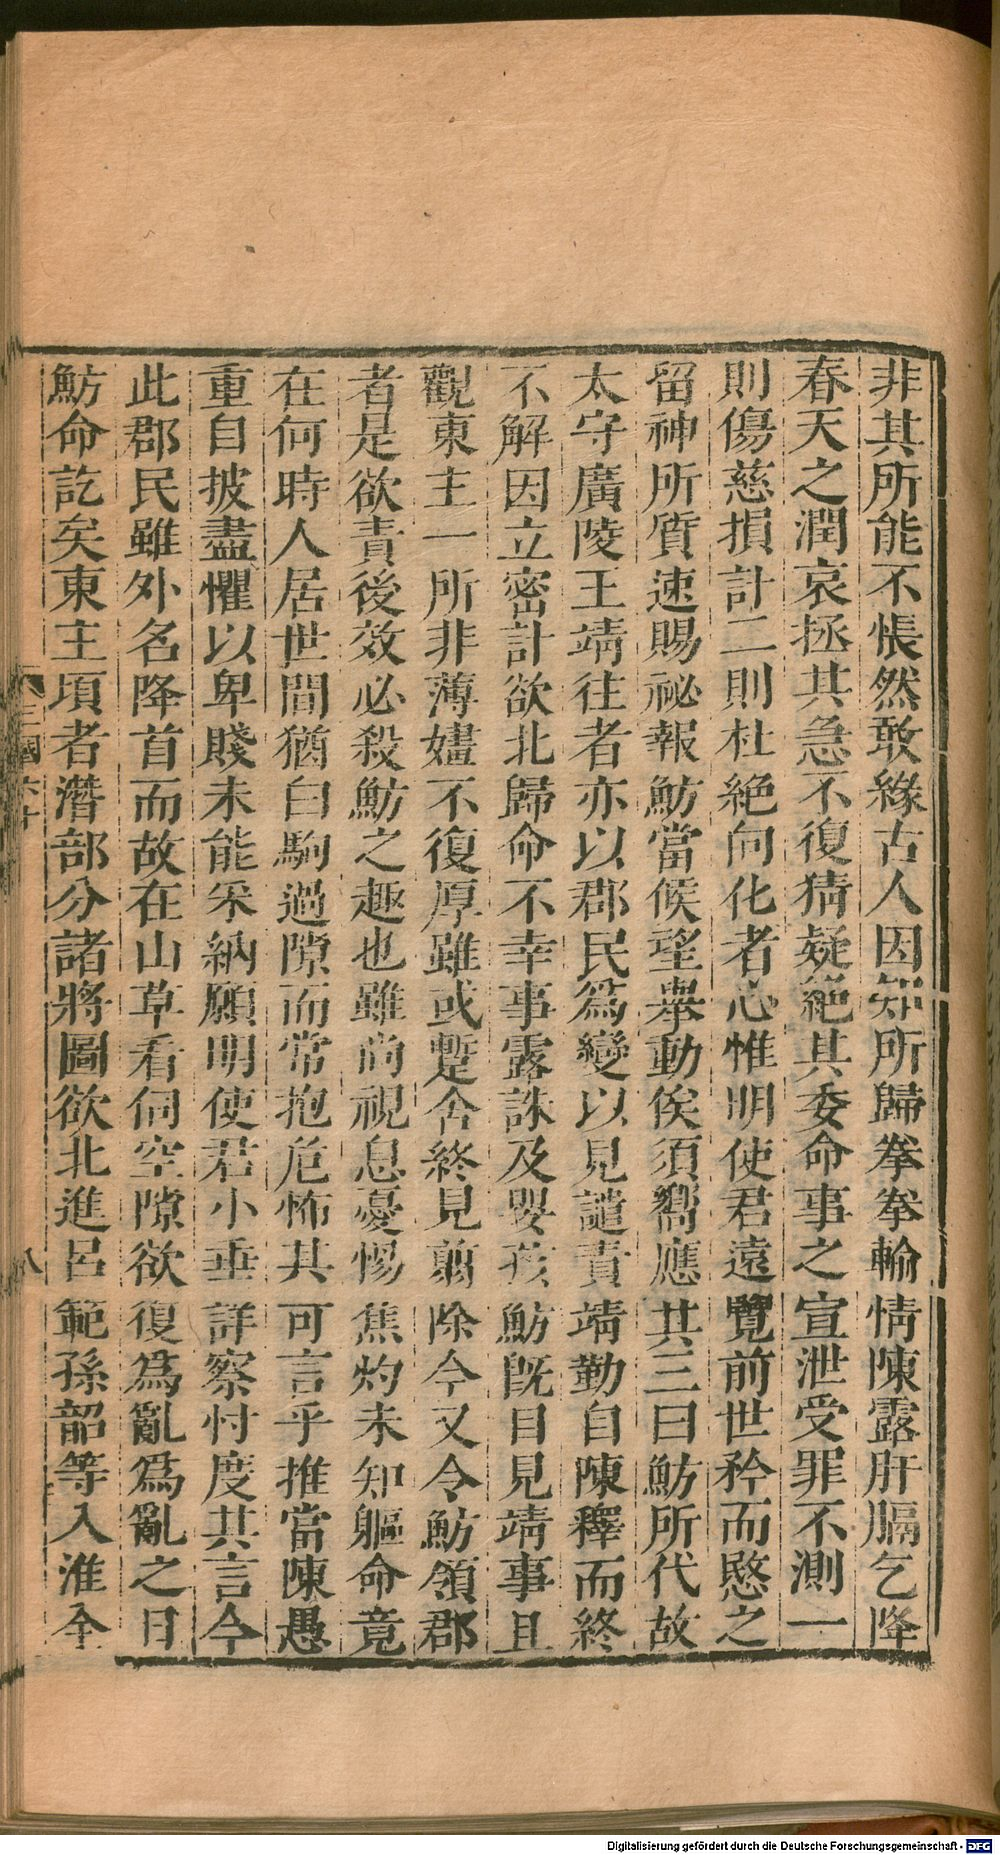 非其所能不悵然敢緣古人因知所歸拳拳輸情陳露肝膈乞降
春天之潤哀拯其急不復猜疑絕其委命事之宣泄受罪不測一
則傷慈損計二則杜絕向化者心惟明使君遠覽前世矜而愍之
留神所質速賜祕報魴當候望舉動俟須嚮應其三曰魴所代故
太守廣陵王靖往者亦以郡民為變以見譴責靖勤自陳釋而終
不解因立密計欲北歸命不幸事露誅及嬰孩魴旣目見靖事且
觀東主一所非薄嫿不復厚雖或蹔舍終見翦除今又令魴領郡
者是欲責後效必殺魴之趣也雖尚視息憂惕焦灼未知軀命竟
在何時人居世間猶白駒過隙而常抱危怖其可言乎推當陳愚
重自披盡懼以卑賤未能采納願明使君小垂詳察忖度其言今
此郡民雖外名降首而故在山草看伺空隙欲復爲亂爲亂之日
魴命訖矣東主頃者潛部分諸將圖欲北進呂範孫韶等入淮全
三國六十
八
Digitalisierung gefördert durch die Deutsche Forschungsgemeinschaft - DFG